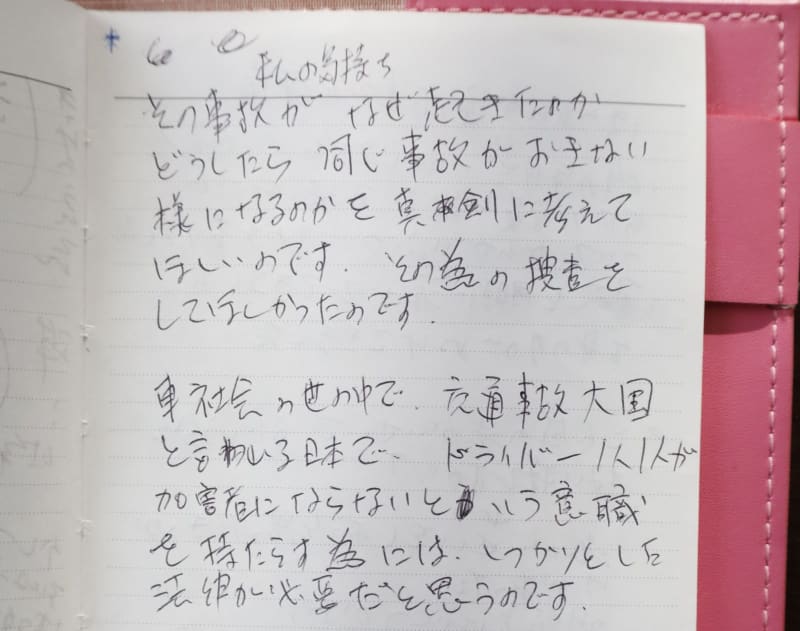 私の気持ち
その事故が なぜ起きたのか
どうしたら 同じ事故がおきない
様になるのかを 真剣に考えて
ほしいのです. その為の捜査を
してほしかったのです.
車社会の世の中で、交通事故大国
と言われる日本で、ドライバー1人1人が
加害者にならないという意職
を持たらす為には、しっかりとした
法律が必要だと思うのです.